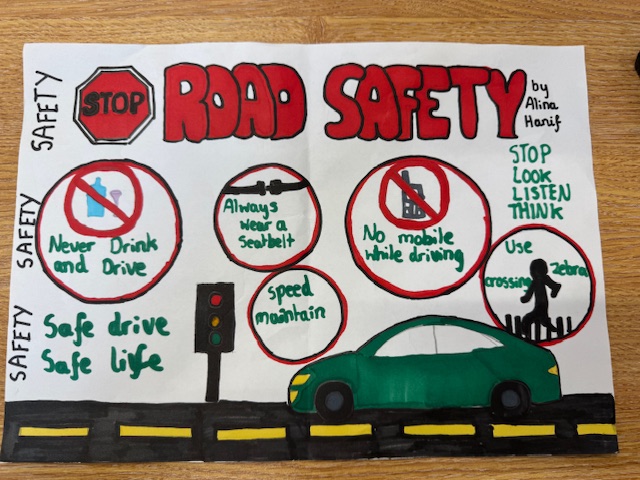 STOP
ROAD SAFETY
by
Alina
Hanif
SAFETY
SAFETY
SAFETY
Never Drink
and Drive
Always
wear a
Seatbelt
No mobile
while driving
STOP
LOOK
LISTEN
THINK
Use
zebra
crossing
speed
maintain
Safe drive
Safe life